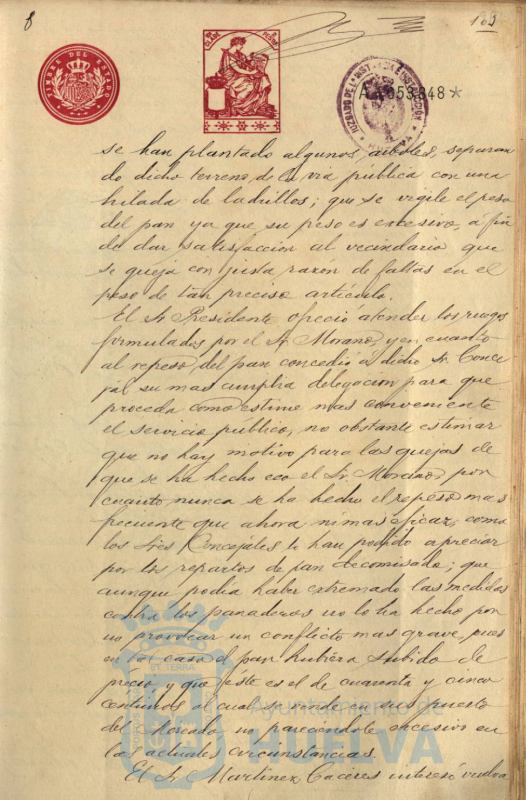 8
169
TIMBRE DEL ESTADO
CLASE
JUZGADO DE 1ª INSTANCIA E INSTRUCCIÓN
HUELVA
A4,053,848*
se han plantado algunos arboles, separan
do dicho terreno, de la via publica con una
hilada de ladrillos; que se vigile el peso
del pan ya que su peso es excesivo, a fin
de dar satisfacción al vecindario que
se queja con justa razón de faltas en el
peso de tan preciso artículo.
El Sr Presidente ofreció atender los ruegos
formulados por el Sr Morano, y en cuanto
al repeso del pan concedió a dicho Sr. Conce
jal su mas amplia delegacion para que
proceda como estime mas conveniente
el servicio publico, no obstante estimar
que no hay motivo para las quejas de
que se ha hecho eco el Sr. Morano, por
cuanto nunca se ha hecho el repeso mas
frecuente que ahora ni mas eficaz, como
los Sres Concejales lo han podido apreciar
por los repartos de pan decomisado; que
aunque podia haber extremado las medidas
contra los panaderos no lo ha hecho por
no provocar un conflicto mas grave, pues
en tal caso el pan hubiera subido de
precio, y que este es el de cuarenta y cinco
centimos al cual se vende en sus puesto
del Mercado, no pareciendole excesivo en
las actuales circunstancias.
El Sr Martinez Caceres interesó vuelva
Ayuntamiento de
HUELVA